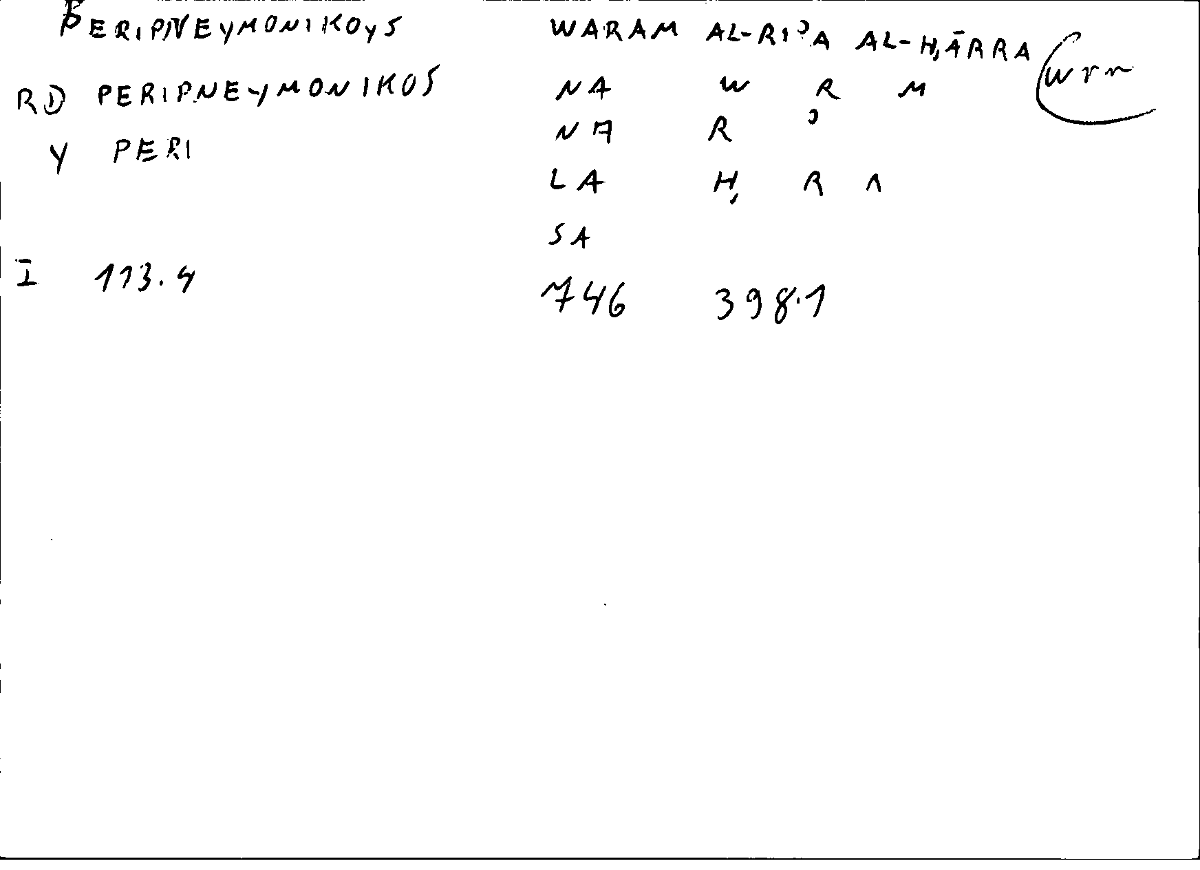 PERIPNEYMONIKOYS WARAM AL-RIʾA AL-ḤĀRRA
RD PERIPNEYMONIKOS NA W R M wrm
Y PERI NA R ʾ
LA Ḥ R Λ
SA
I 113.4 746 398.1